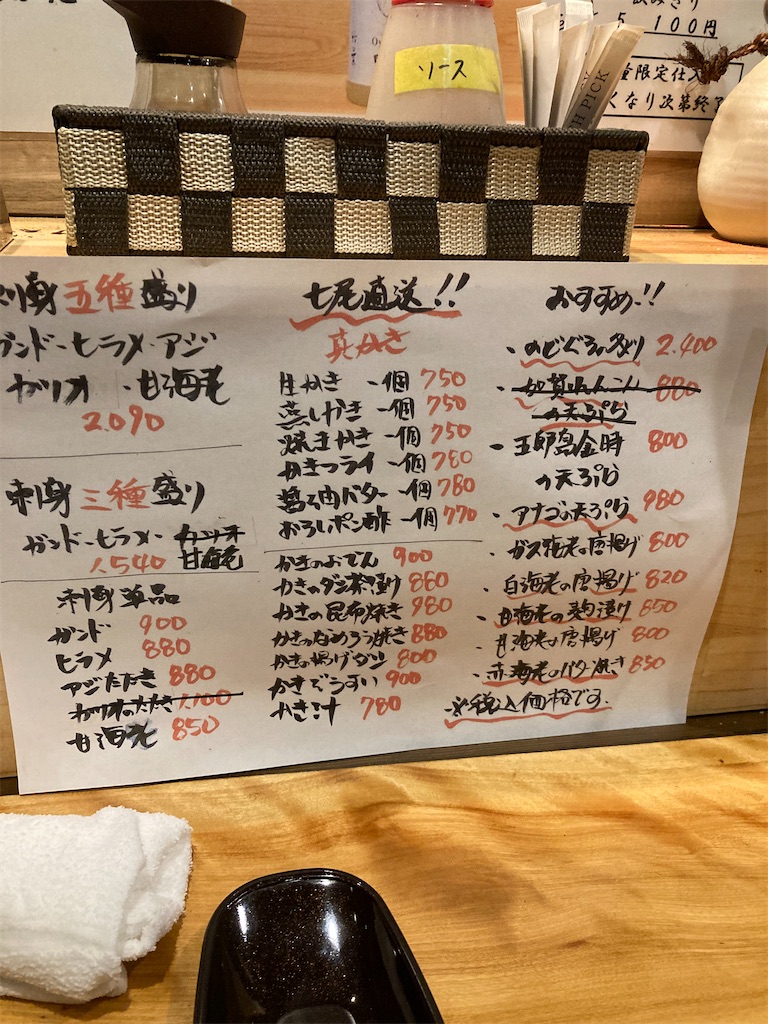 ソース
5 100円
量限定仕入
くなり次第終了
PICK
刺身五種盛り
ガンド・ヒラメ・アジ
カツオ・甘海老
2.090
刺身三種盛り
ガンド・ヒラメ・カツオ
甘海老
1.540
刺身単品
ガンド 900
ヒラメ 880
アジたたき 880
カツオのたたき 1.100
甘海老 850
七尾直送!!
真かき
生かき 一個 750
蒸しがき 一個 750
焼きかき 一個 750
かきフライ 一個 780
バター 一個 780
おろしポン酢 一個 770
かきのおでん 900
かきのダシ茶漬け 880
かきの昆布焼き 980
かきのなめろう焼き 880
かきの揚げダシ 800
かきぞうすい 900
かき汁 780
おすすめ!!
・のどぐろ 2.400
・加賀 880
の天ぷら
・五郎島金時 800
の天ぷら
・アナゴの天ぷら 980
・ガス海老の唐揚げ 800
・白海老の唐揚げ 820
・甘海老の麹漬け 650
・甘海老の唐揚げ 800
・赤海老のバター焼き 850
※税込価格です。